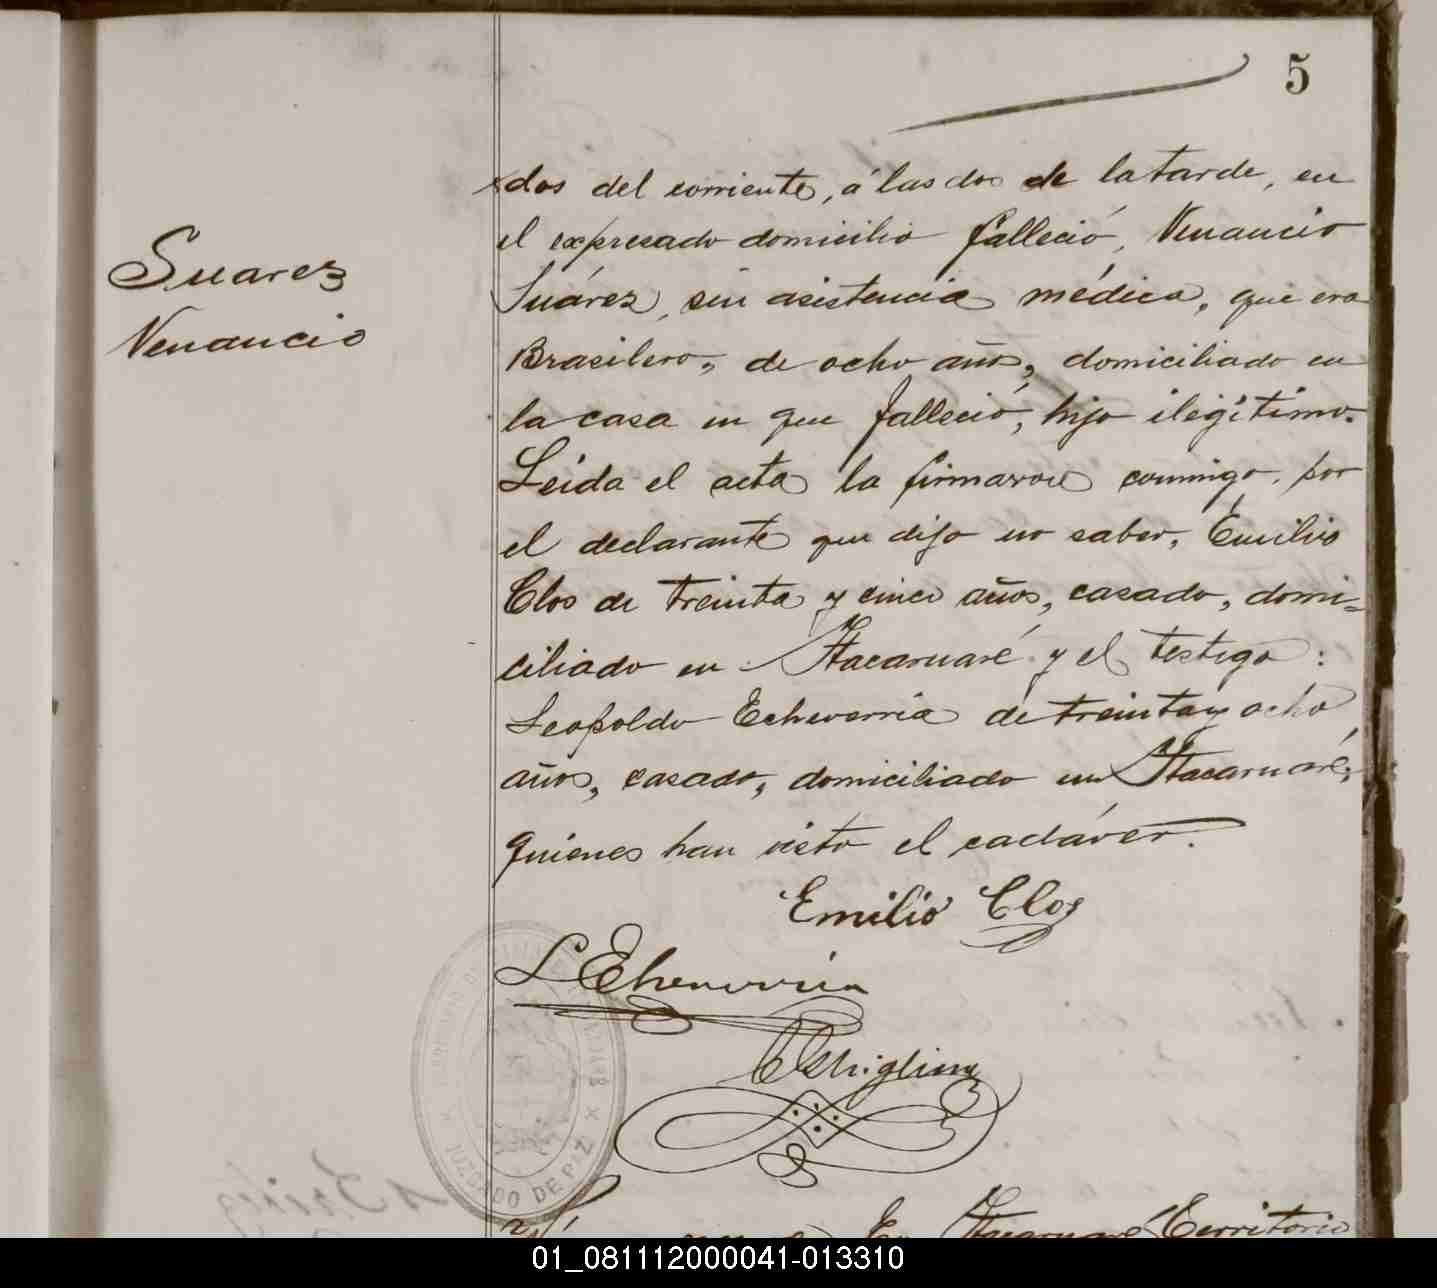 5
dos del corriente, á las dos de la tarde, en
el expresado domicilio falleció, Venancio
Suárez, sin asistencia médica, que era
Brasilero, de ocho años, domiciliado en
la casa en que falleció, hijo ilegítimo.
Leida el acta la firmaron conmigo, por
el declarante que dijo no saber, Emilio
Clos de treinta y cinco años, casado, domi-
ciliado en Itacaruaré y el testigo:
Leopoldo Echeverria de treinta y ocho
años, casado, domiciliado en Itacaruaré,
quienes han visto el cadáver.
Suarez
Venancio
Emilio Clos
L Echeverria
JUZGADO DE PAZ
En Itacaruaré Territorio
01_081112000041-013310